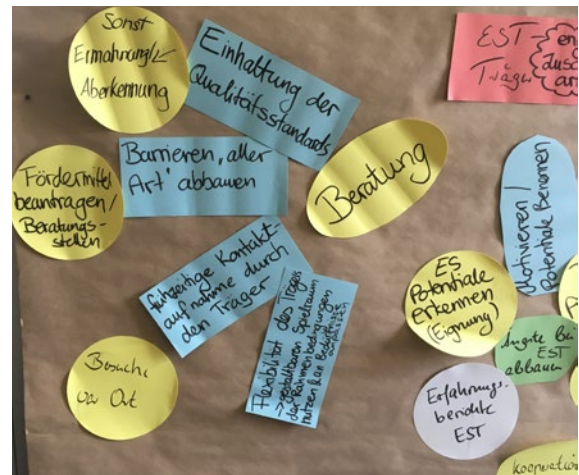 Sonst
Ermahnung/
Aberkennung
Einhaltung der
Qualitätsstandards
EST –
Träger
Barrieren „aller
Art" abbauen
Beratung
Fördermittel
beantragen/
Beratungs-
stellen
Motivieren/
Potentiale benennen
frühzeitige Kontakt-
aufnahme durch
den Träger
Flexibilität des Trägers
→ gestaltbaren Spielraum
der Rahmenbedingungen
nutzen & an Bedürfnisse
anpassen
ES
Potentiale
erkennen
(Eignung)
Ängste bei
EST
abbauen
Besuche
vor Ort
Erfahrungs-
berichte
EST